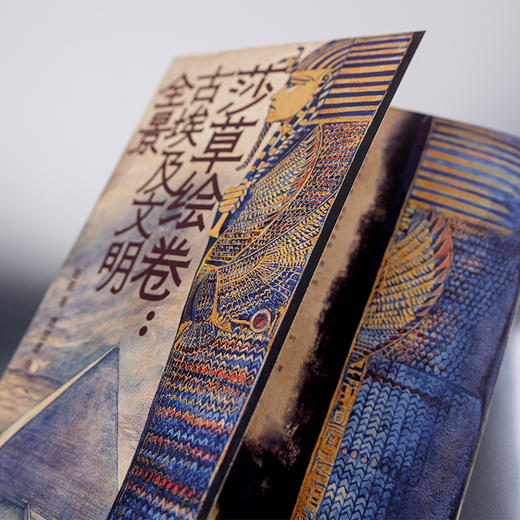 莎草绘卷：
古埃及文明
全景